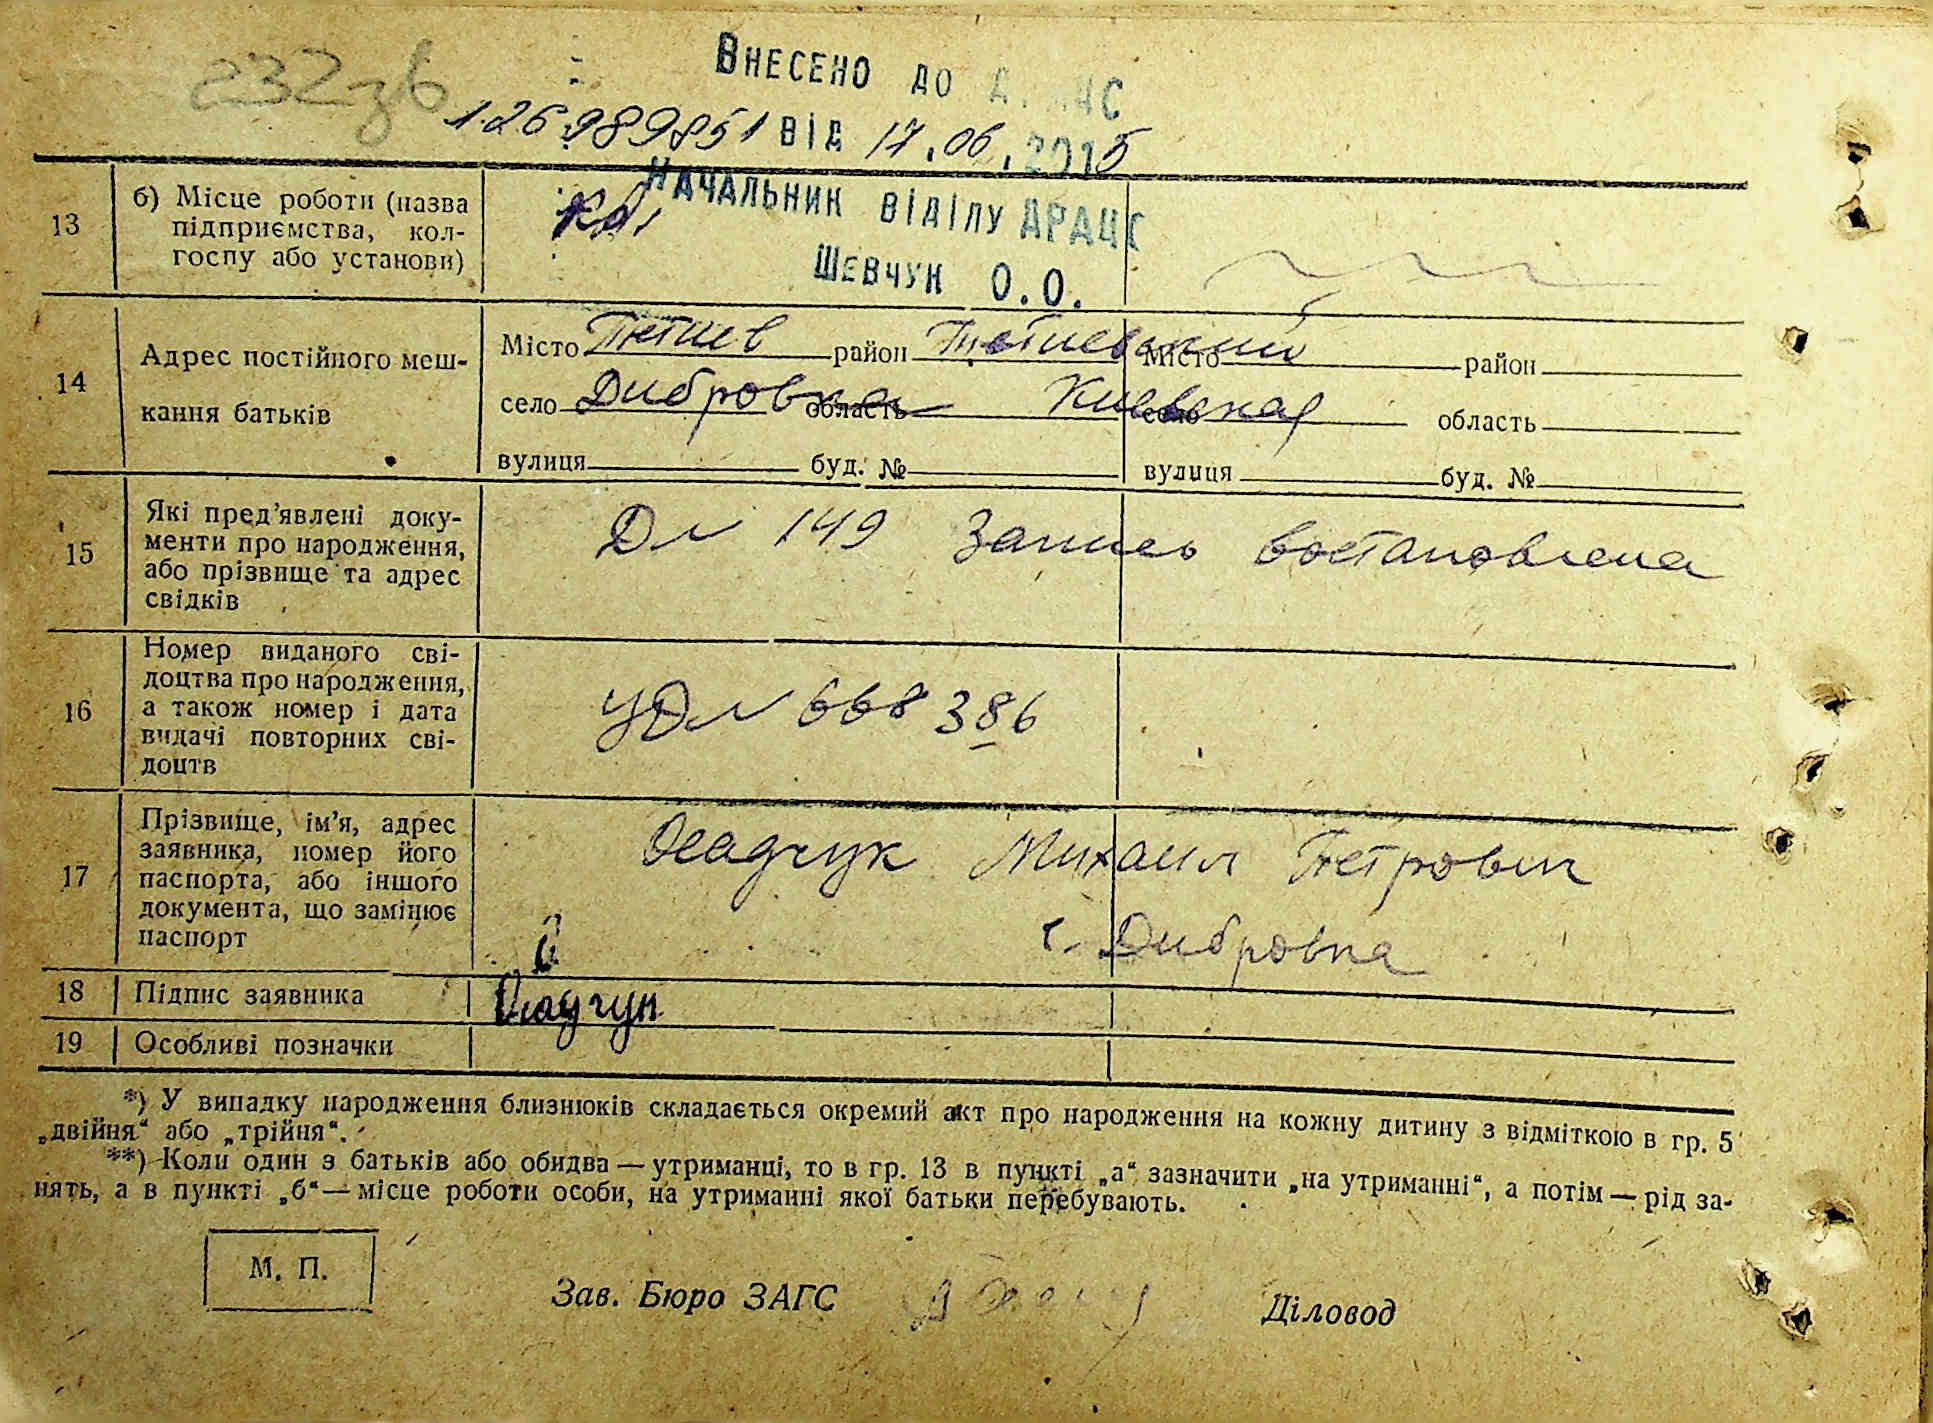 232зв
Внесено до
126989851 від 17.06.2015
Начальник відділу ДРАЦС
Шевчук О.О.
13
б) Місце роботи (назва
підприємства, кол-
госпу або установи)
14
Адрес постійного меш-
кання батьків
Місто Тетиев район Тетиевский Місто район
село Дибровка область Киевская село область
вулиця буд. № вулиця буд. №
15
Які пред’явлені доку-
менти про народження,
або прізвище та адрес
свідків
149 Запись востановлена
16
Номер виданого сві-
доцтва про народження,
а також номер і дата
видачі повторних сві-
доцтв
668386
17
Прізвище, ім’я, адрес
заявника, номер його
паспорта, або іншого
документа, що замінює
паспорт
Осадчук Михаил Петрович
с. Дибровка
18 Підпис заявника
19 Особливі позначки
*) У випадку народження близнюків складається окремий акт про народження на кожну дитину з відміткою в гр. 5
„двійня“ або „трійня“.
**) Коли один з батьків або обидва — утриманці, то в гр. 13 в пункті „а“ зазначити „на утриманні“, а потім — рід за-
нять, а в пункті „б“ — місце роботи особи, на утриманні якої батьки перебувають.
М. П.
Зав. Бюро ЗАГС Діловод